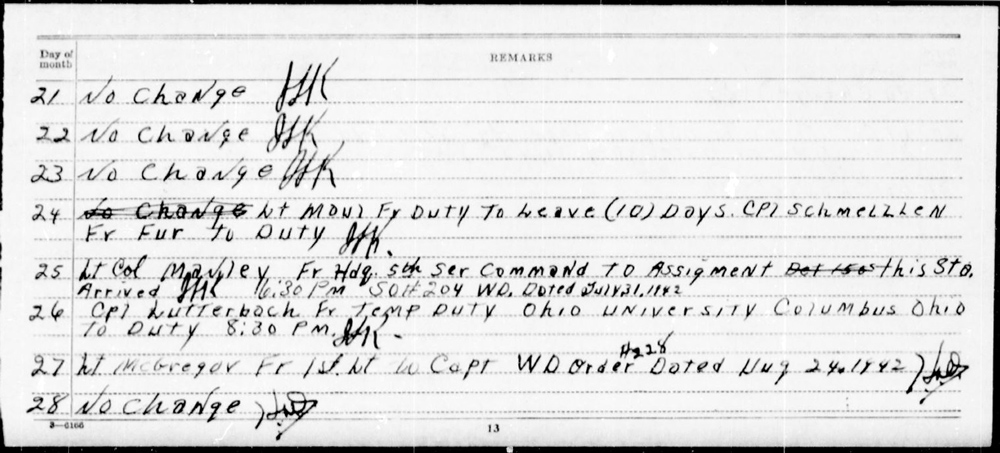 Day of month
REMARKS
21 No Change JSK
22 No Change JSK
23 No Change JSK
24 No Change Lt Mowl Fr Duty To Leave (10) Days. Cpl Schmelzlen
Fr Fur to Duty JSK.
25 Lt Col Manley Fr Hdq. 5th Ser Command To Assigment this Sta.
Arrived JSK 6:30 PM SO# 204 WD. Dated July 31, 1942
26 Cpl Lutterbach Fr Temp Duty Ohio University Columbus Ohio
To Duty 8:30 PM. JSK-
#228
27 Lt McGregor Fr 1st. Lt to Capt WD Order Dated Aug 24, 1942
28 No Change
3—6166
13